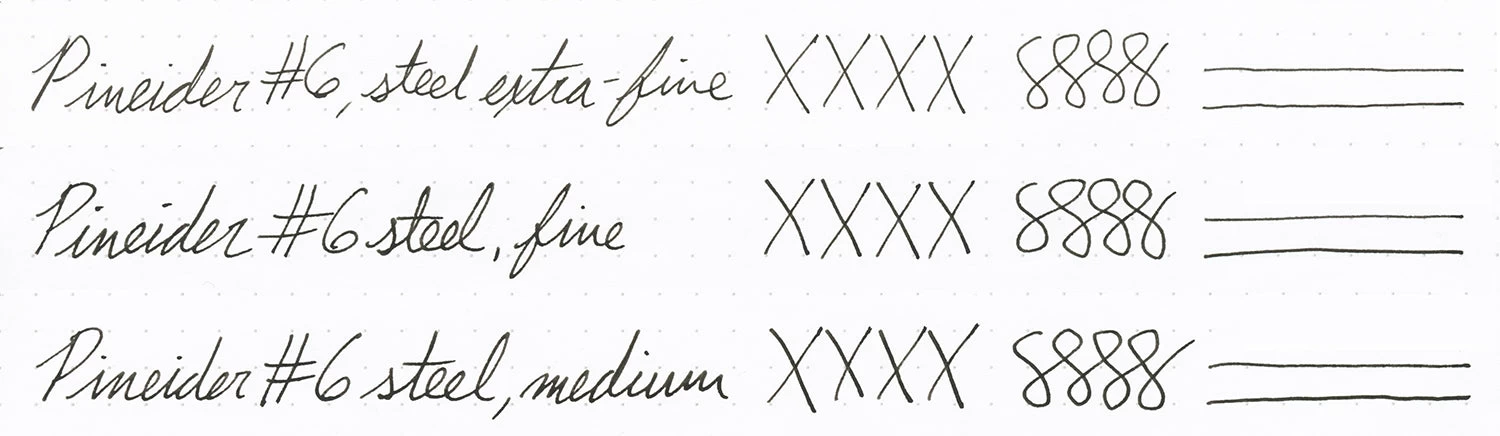 Pineider #6, steel extra-fine XXXX 8888
Pineider #6 steel, fine XXXX 8888
Pineider #6 steel, medium XXXX 8888